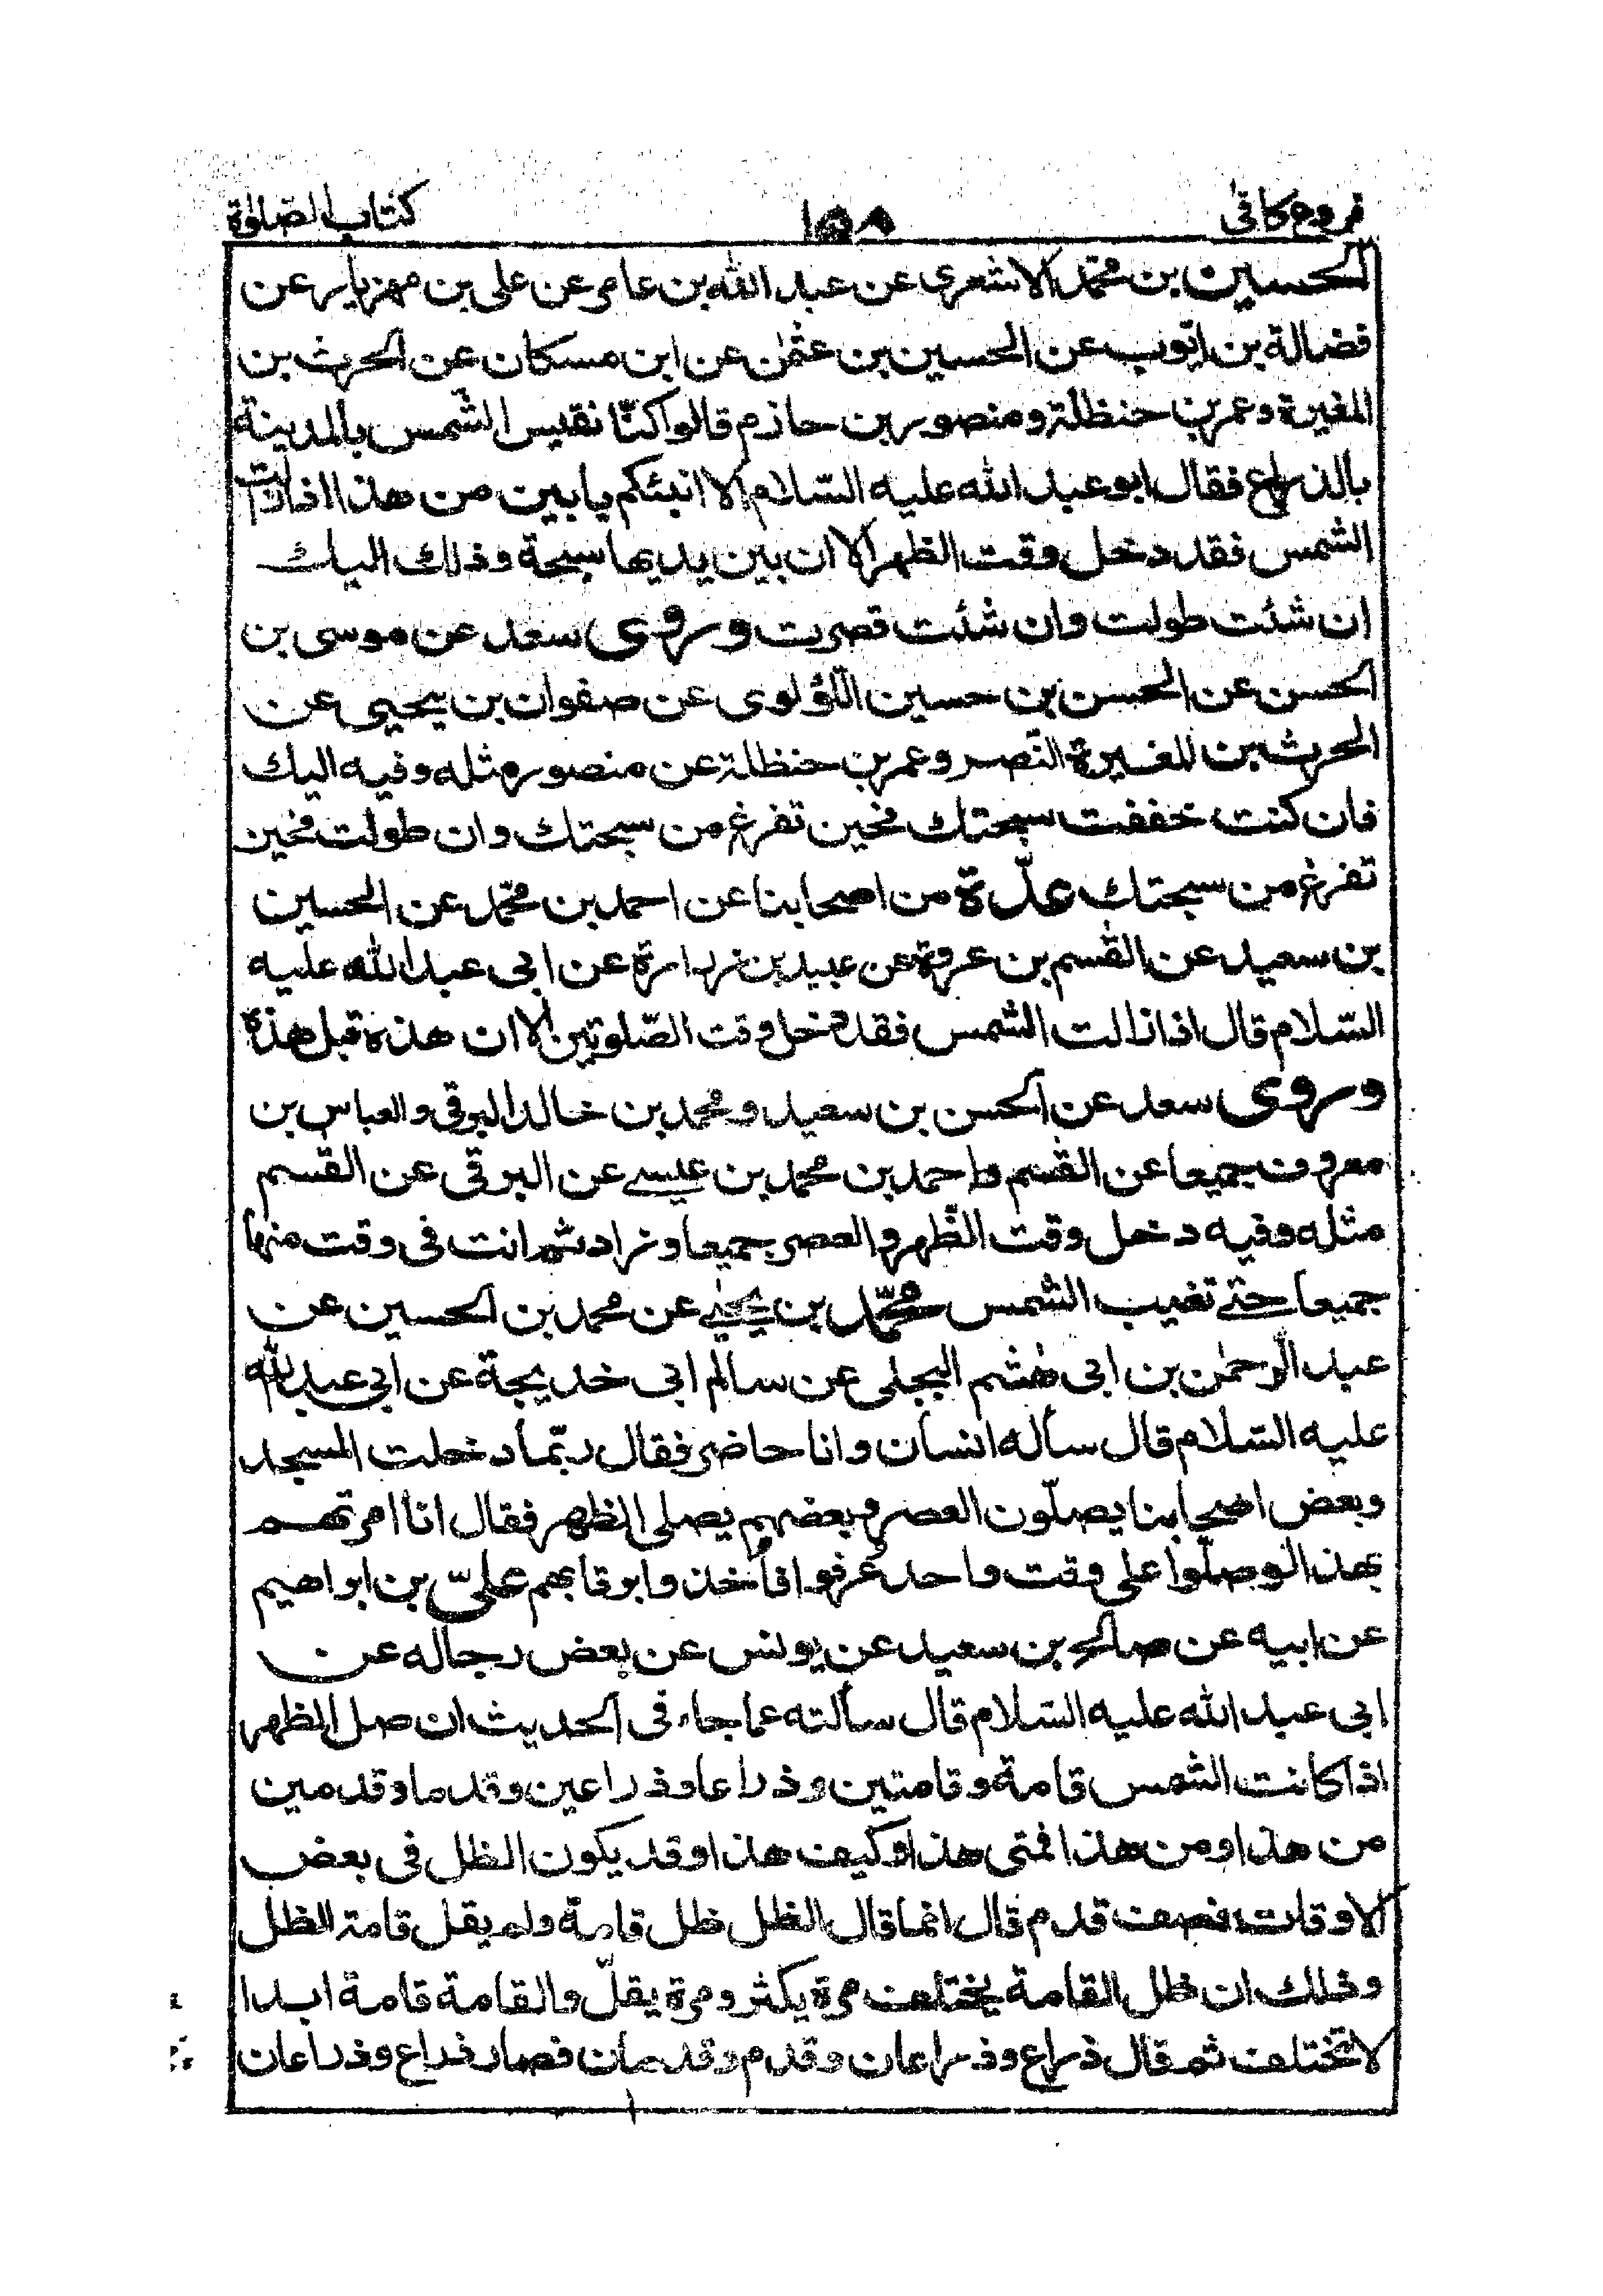 فروع كافى ١٥٨ كتاب الصلوٰة
الحسين بن محمّد الاشعرى عن عبد الله بن عامر عن على بن مهزيار عن
فضالة بن ايّوب عن الحسين بن عثمٰن عن ابن مسكان عن الحرث بن
المغيرة وعمر بن حنظلة ومنصور بن حازم قالوا كنّا نقيس الشّمس بالمدينة
بالذراع فقال ابو عبد الله عليه السّلام الا انبئكم بابين من هذا اذا زالت
الشمس فقد دخل وقت الظهر الا ان بين يديها سبحة وذلك اليك
ان شئت طولت وان شئت قصرت وروى سعد عن موسى بن
الحسن عن الحسن بن حسين اللّؤلوى عن صفوان بن يحيى عن
الحرث بن المغيرة النّصر وعمر بن حنظلة عن منصور مثله وفيه اليك
فان كنت خففت سبحتك فحين تفرغ من سبحتك وان طولت فحين
تفرغ من سبحتك عدّة من اصحابنا عن احمد بن محمّد عن الحسين
بن سعيد عن القٰسم بن عروة عن عبيد بن زرارة عن ابى عبد الله عليه
السّلام قال اذا زالت الشمس فقد دخل وقت الصّلوتين الا ان هذه قبل هذه
وروى سعد عن الحسن بن سعيد ومحمد بن خالد البرقى والعباس بن
معروف جميعا عن القٰسم واحمد بن محمد بن عيسى عن البرقى عن القٰسم
مثله وفيه دخل وقت الظّهر والعصر جميعا وزاد ثم انت فى وقت منهما
جميعا حتى تغيب الشمس محمّد بن يحيى عن محمد بن الحسين عن
عبد الرّحمٰن بن ابى هٰشم البجلى عن سالم ابى خديجة عن ابى عبد الله
عليه السّلام قال سأله انسان وانا حاضر فقال ربّما دخلت المسجد
وبعض اصحابنا يصلّون العصر وبعضهم يصلى الظهر فقال انا امرتهم
بهذا لو صلّوا على وقت واحد عُرفوا فأُخذوا برقابهم علىّ بن ابراهيم
عن ابيه عن صالح بن سعيد عن يونس عن بعض رجاله عن
ابى عبد الله عليه السّلام قال سألته عما جاء فى الحديث ان صل الظهر
اذا كانت الشمس قامة وقامتين وذراعا وذراعين وقدما وقدمين
من هذا ومن هذا فمتى هذا وكيف هذا وقد يكون الظل فى بعض
الاوقات نصف قدم قال انما قال الظل ظل قامة ولم يقل قامة الظل
وذلك ان ظل القامة يختلف مرة يكثر ومرة يقلّ والقامة قامة ابدا
لا تختلف ثم قال ذراع وذراعان وقدم وقدمان فصار ذراع وذراعان